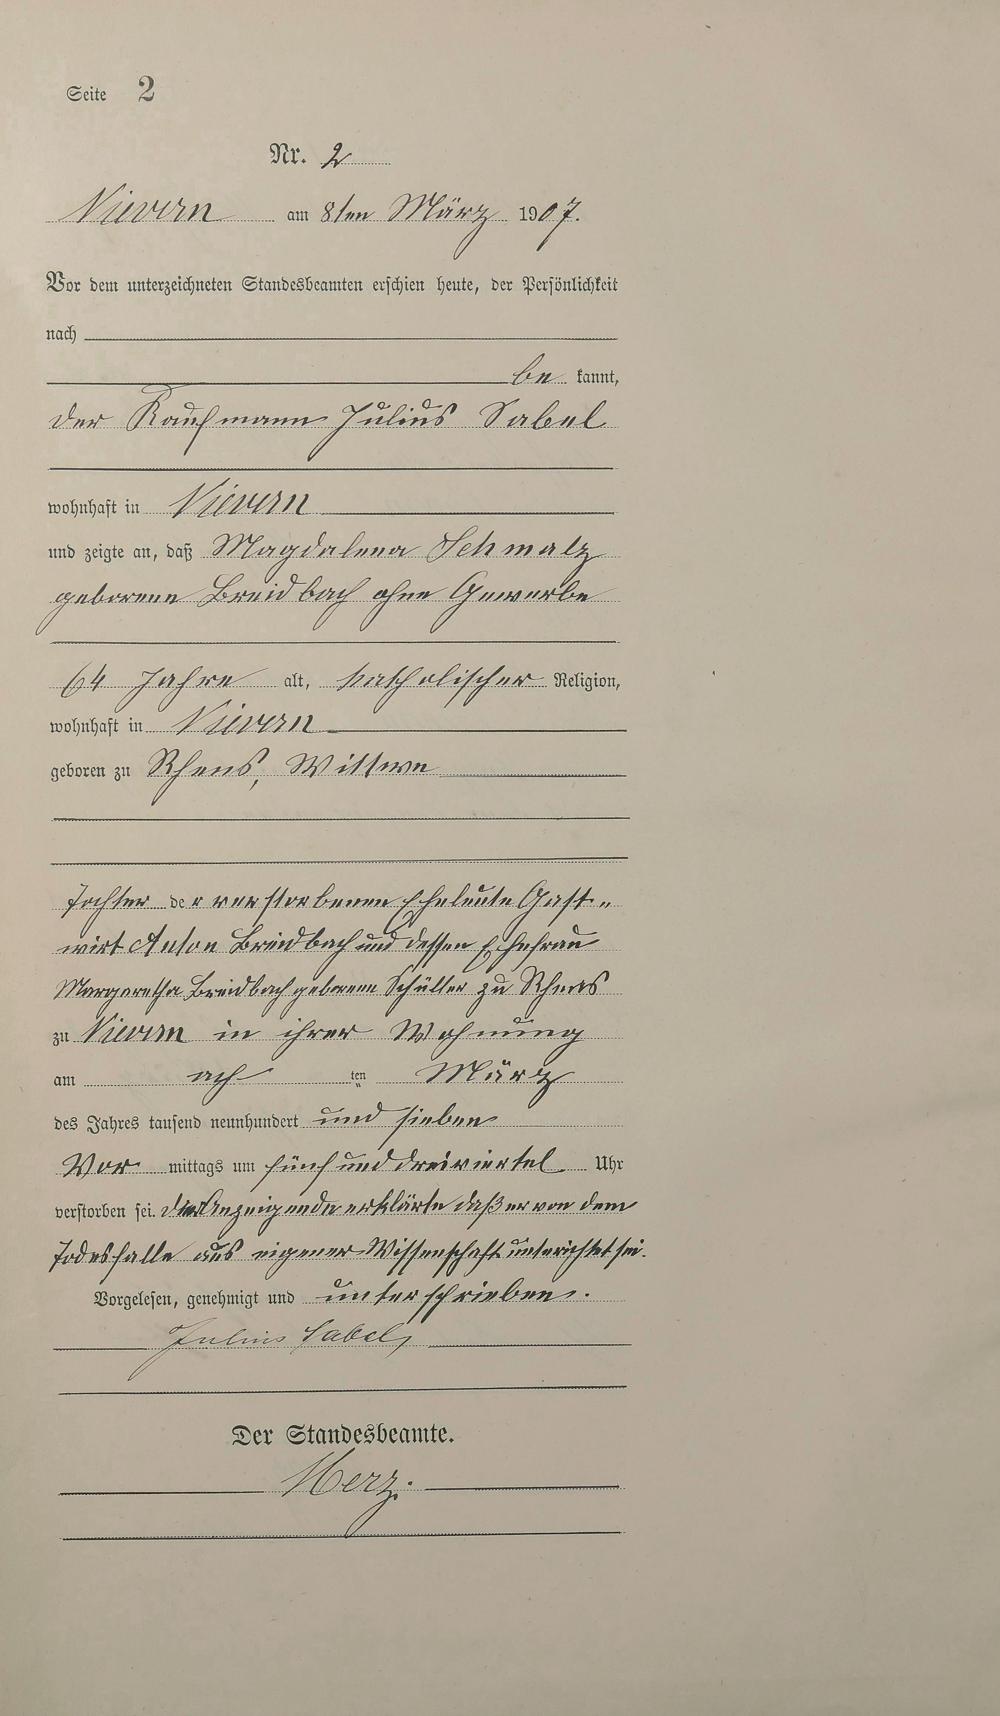 Seite 2
Nr. 2
Nievern am 8ten März 1907.
Vor dem unterzeichneten Standesbeamten erschien heute, der Persönlichkeit
nach
be kannt,
der Kaufmann Julius Sabel
wohnhaft in Nievern
und zeigte an, daß Magdalena Schmalz
geborene Breidbach ohne Gewerbe
64 Jahre alt, katholischer Religion,
wohnhaft in Nievern
geboren zu Rhens, Wittwe
Tochter der verstorbenen Eheleute Gast-
wirt Anton Breidbach und dessen Ehefrau
Margaretha Breidbach geborene Schüller zu Rhens
zu Nievern in ihrer Wohnung
am ach ten März
des Jahres tausend neunhundert und sieben
Vor mittags um fünf und dreiviertel Uhr
verstorben sei. Der Anzeigende erklärte daß er von dem
Todesfalle aus eigener Wissenschaft unterrichtet sei.
Vorgelesen, genehmigt und unterschrieben.
Julius Sabel
Der Standesbeamte.
Herz.